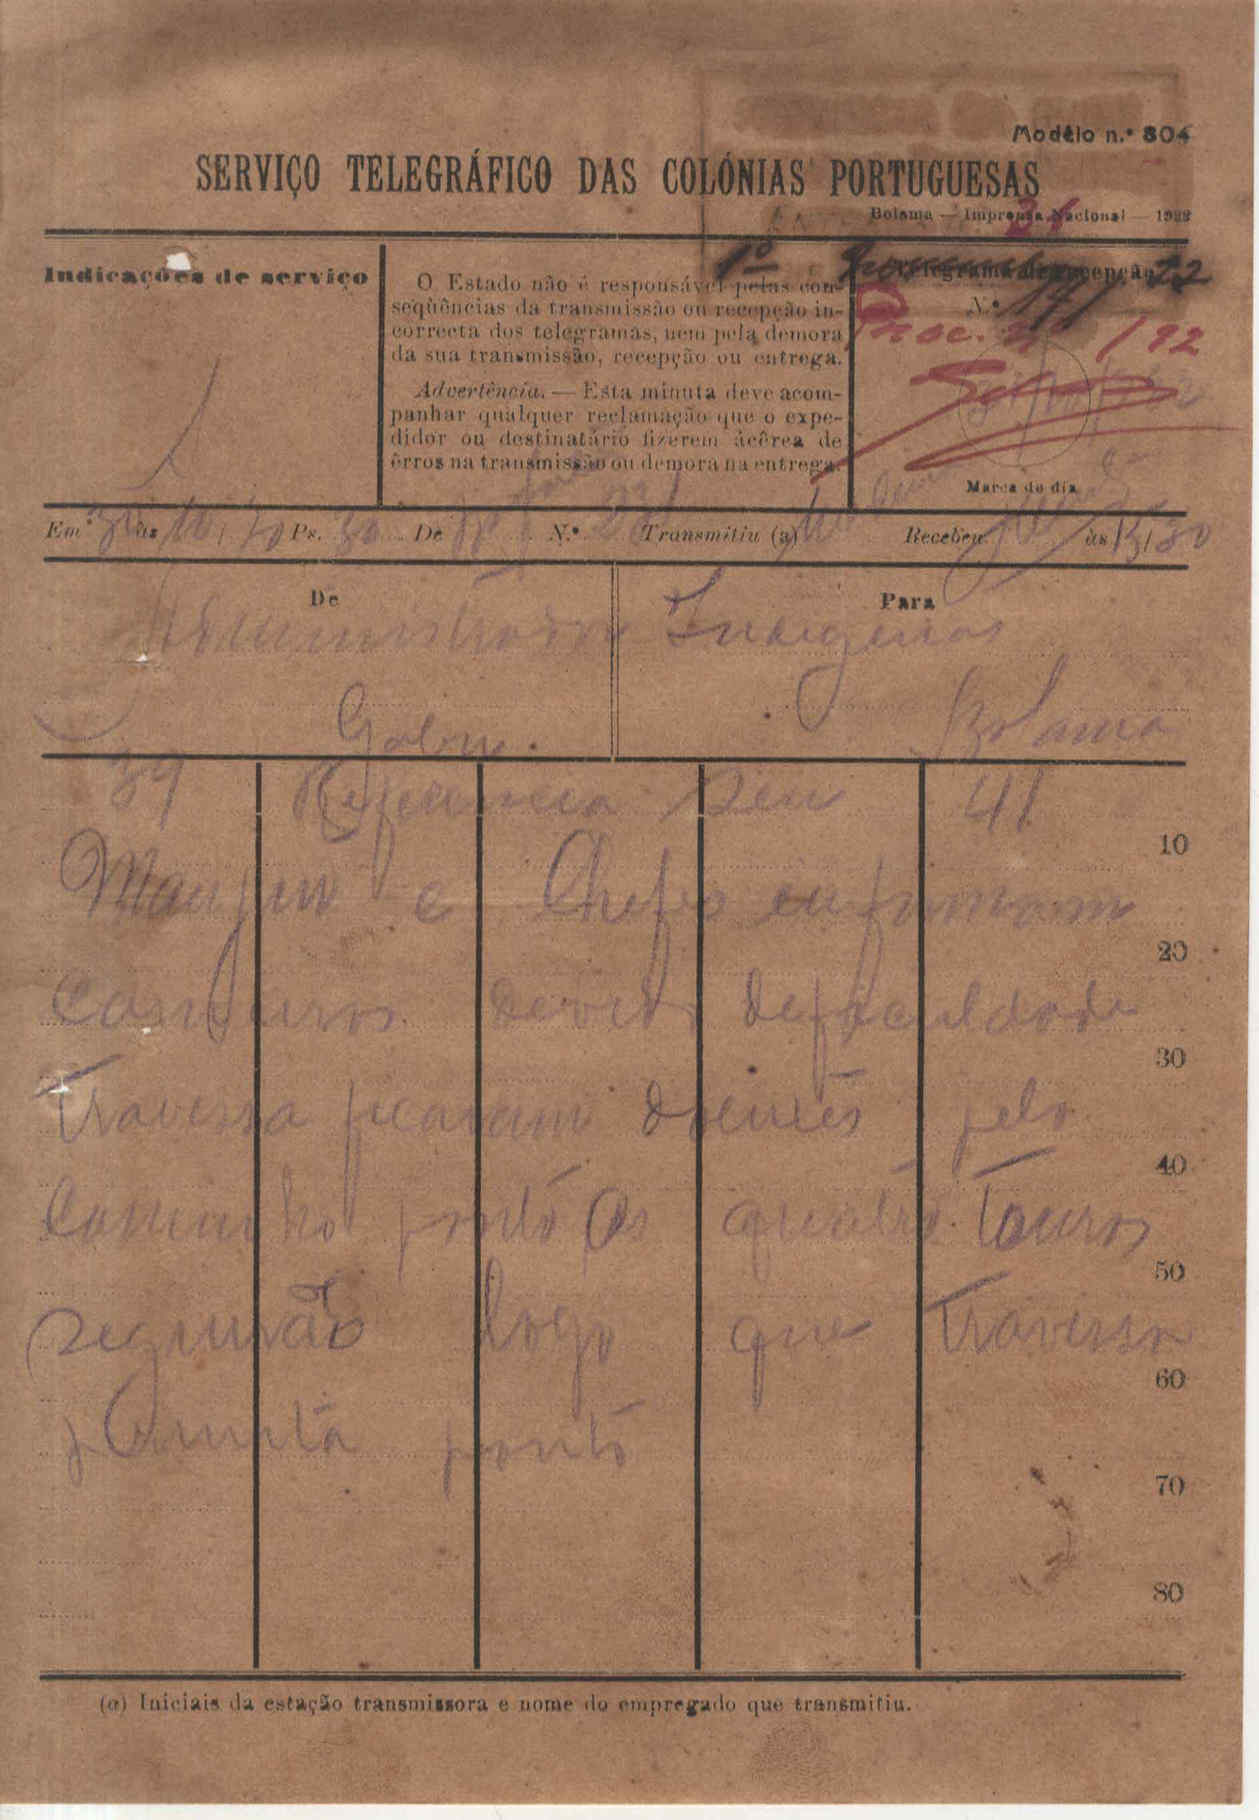 Modêlo n.º 804
SERVIÇO TELEGRÁFICO DAS COLÓNIAS PORTUGUESAS
Bolama — Imprensa Nacional — 1922
Indicações de serviço
O Estado não é responsável pelas con-
seqüências da transmissão ou recepção in-
correcta dos telegramas, nem pela demora
da sua transmissão, recepção ou entrega.
Advertência. — Esta minuta deve acom-
panhar qualquer reclamação que o expe-
didor ou destinatário fizerem àcêrca de
êrros na transmissão ou demora na entrega.
1º
Telegrama de recepção
N.º 171
Proc. nº 192
Marca do dia
Em 30 às 10/30 Ps. 30 De N.º Transmitiu (a) Recebeu às 15/30
De
Administrador
Gabu.
Para
Indigenas
Bolama
39 Referencia seu 41
10
e Chefes informam
20
Carneiros devido deficuldade
30
Travessa ficaram doentes pelo
40
Caminho ponto Os quatro Touros
50
seguirão logo que travessa
60
permita ponto
70
80
(a) Iniciais da estação transmissora e nome do empregado que transmitiu.